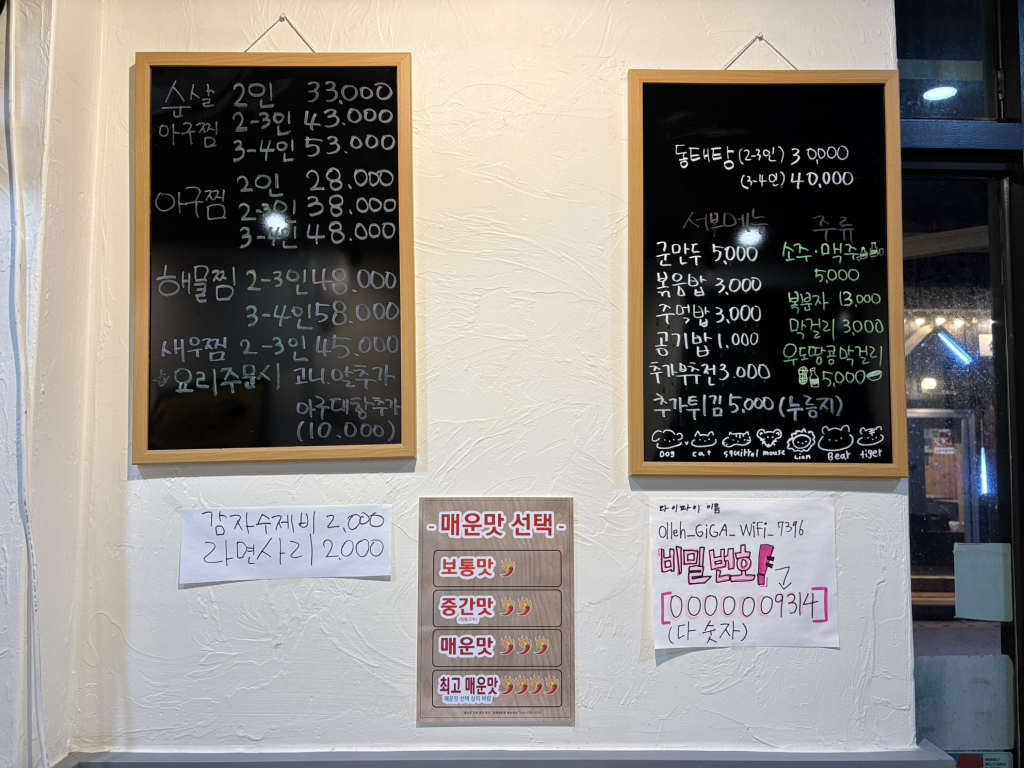 순살 2인 33,000
아구찜 2-3인 43.000
3-4인 53.000
아구찜 2인 28.000
2-3인 38.000
3-4인 48.000
해물찜 2-3인 48.000
3-4인 58.000
새우찜 2-3인 45.000
요리주문시 고니.알추가
아구대창추가
(10.000)
동태탕 (2-3인) 30,000
(3-4인) 40,000
서부메뉴
군만두 5,000
볶음밥 3,000
주먹밥 3,000
공기밥 1,000
추가부추전 3,000
추가튀김 5,000 (누룽지)
주류
소주·맥주
5,000
복분자 13,000
막걸리 3,000
우도땅콩막걸리
5,000
Dog cat squirrol mouse Lion Bear tiger
감자수제비 2,000
라면사리 2000
- 매운맛 선택 -
보통맛
중간맛
매운맛
최고 매운맛
매운맛 선택 심의 바람
와이파이 이름
Olleh_GiGA_WiFi_7396
비밀번호!
[0000009314]
(다 숫자)